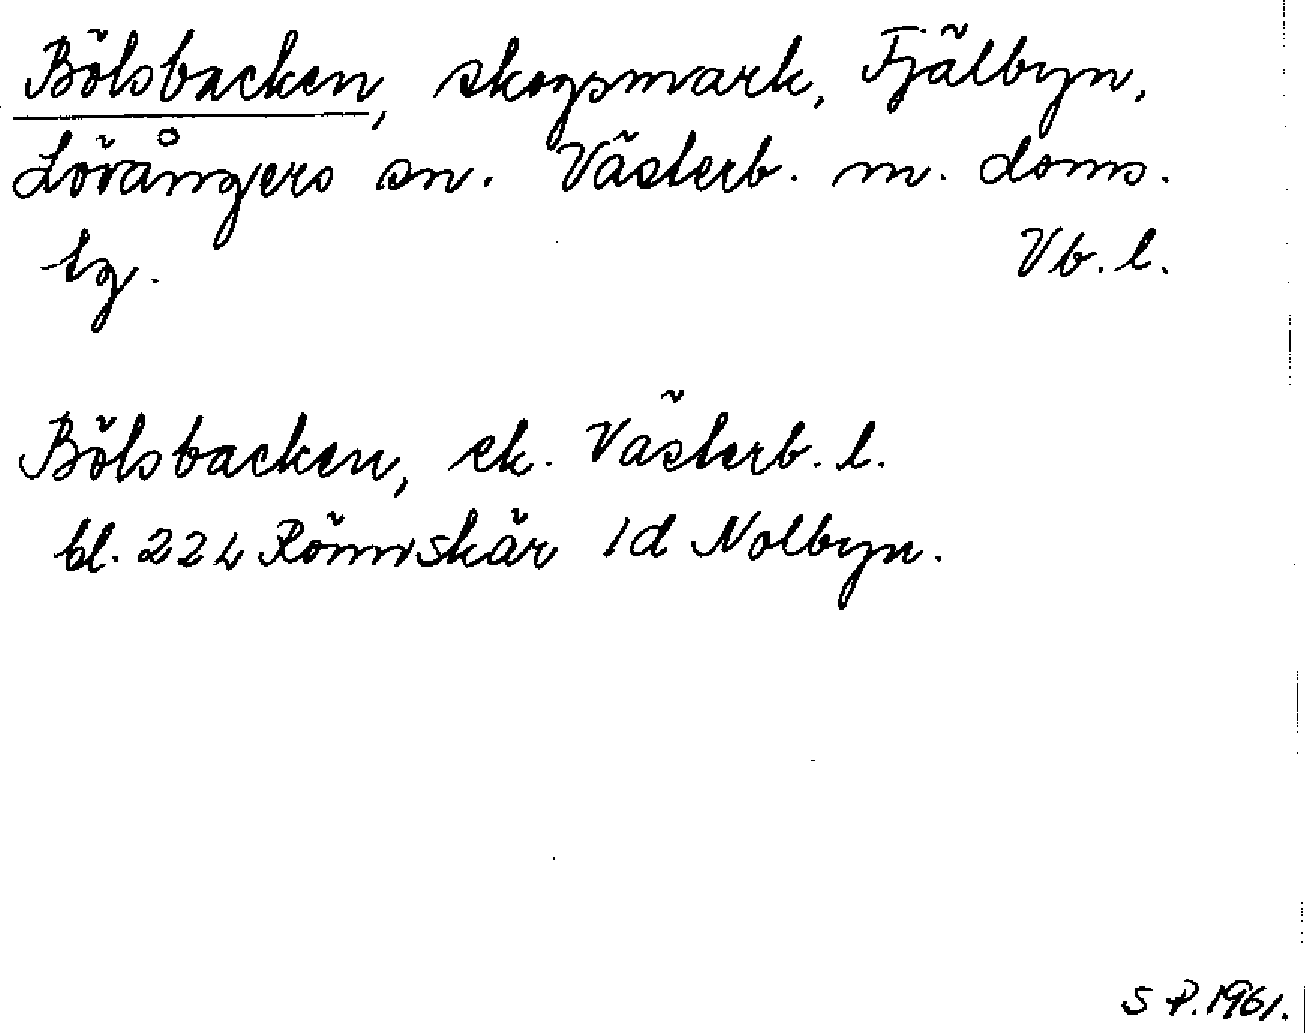 Bölsbacken, skogsmark, Fjälbyn,
Lövångers sn. Västerb. m. doms.
tg. Vb. l.
Bölsbacken, ek. Västerb. l.
bl. 22 L Rönnskär 1d Nolbyn.
S P. 1961.